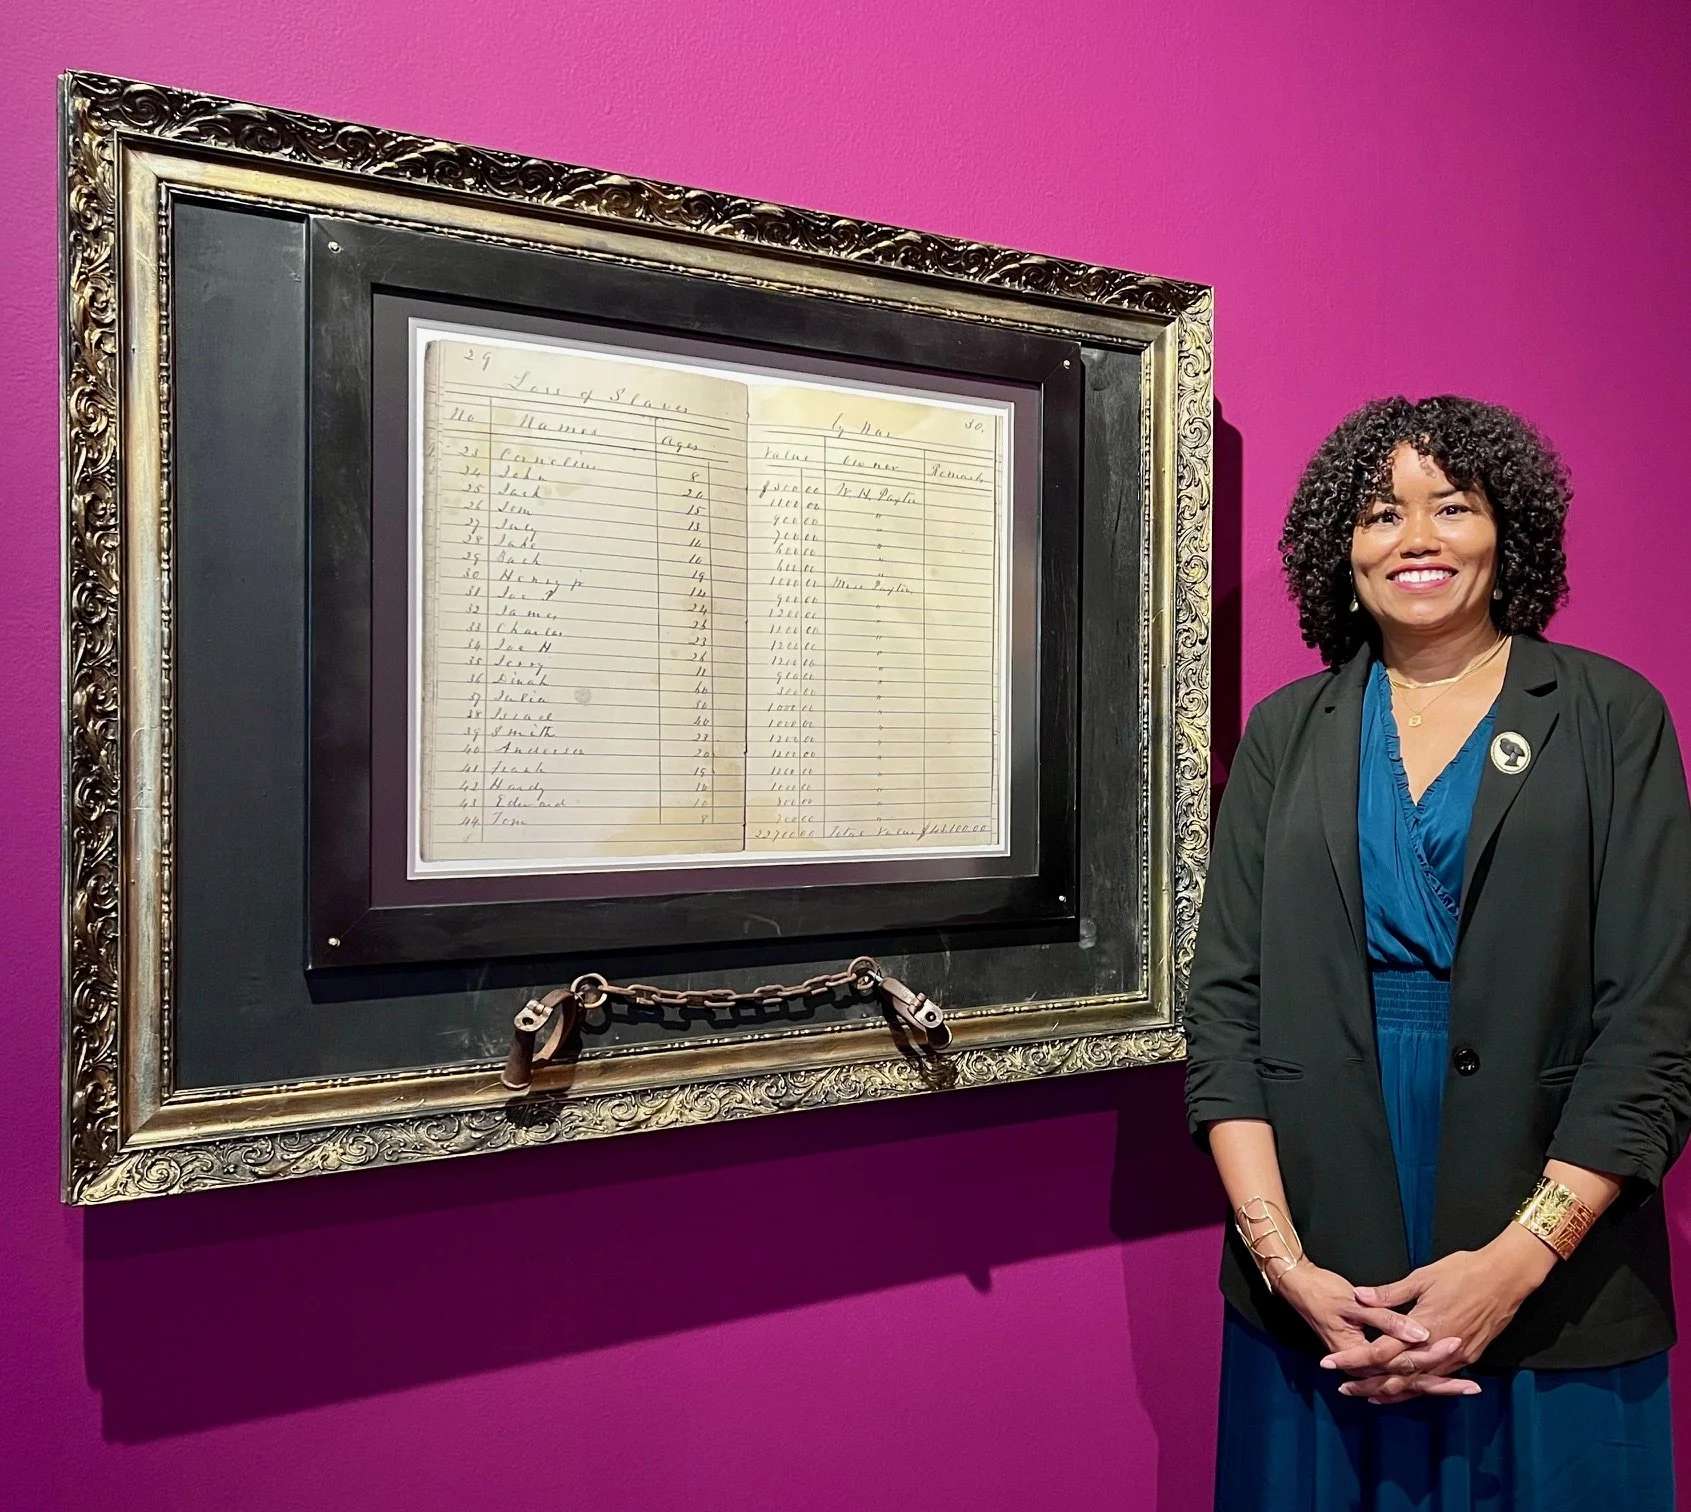 29
Loss of Slaves
by War
30.
No. Names Ages Value Owner Remarks
23 Cornelius 8 $300.00 W. H. Paxton
24 John 20 1100.00 "
25 Jack 15 900.00 "
26 Tom 13 700.00 "
27 July 600.00 "
28 Jake 600.00 "
29 Zach 19 1000.00 Miss Paxton
30 Henry jr 14 900.00 "
31 Joe P 24 1200.00 "
32 James 1200.00 "
33 Charles 23 1200.00 "
34 Joe H 26 1200.00 "
35 Jerry 900.00 "
36 Dinah 60 300.00 "
37 Julia 30 1000.00 "
38 Israel 40 1000.00 "
39 Smith 23 1200.00 "
40 Anderson 20 1200.00 "
41 Frank 19 1200.00 "
42 Hardy 1000.00 "
43 Edward 10 "
44 Tom 8 "
22700.00 Total Value $43100.00